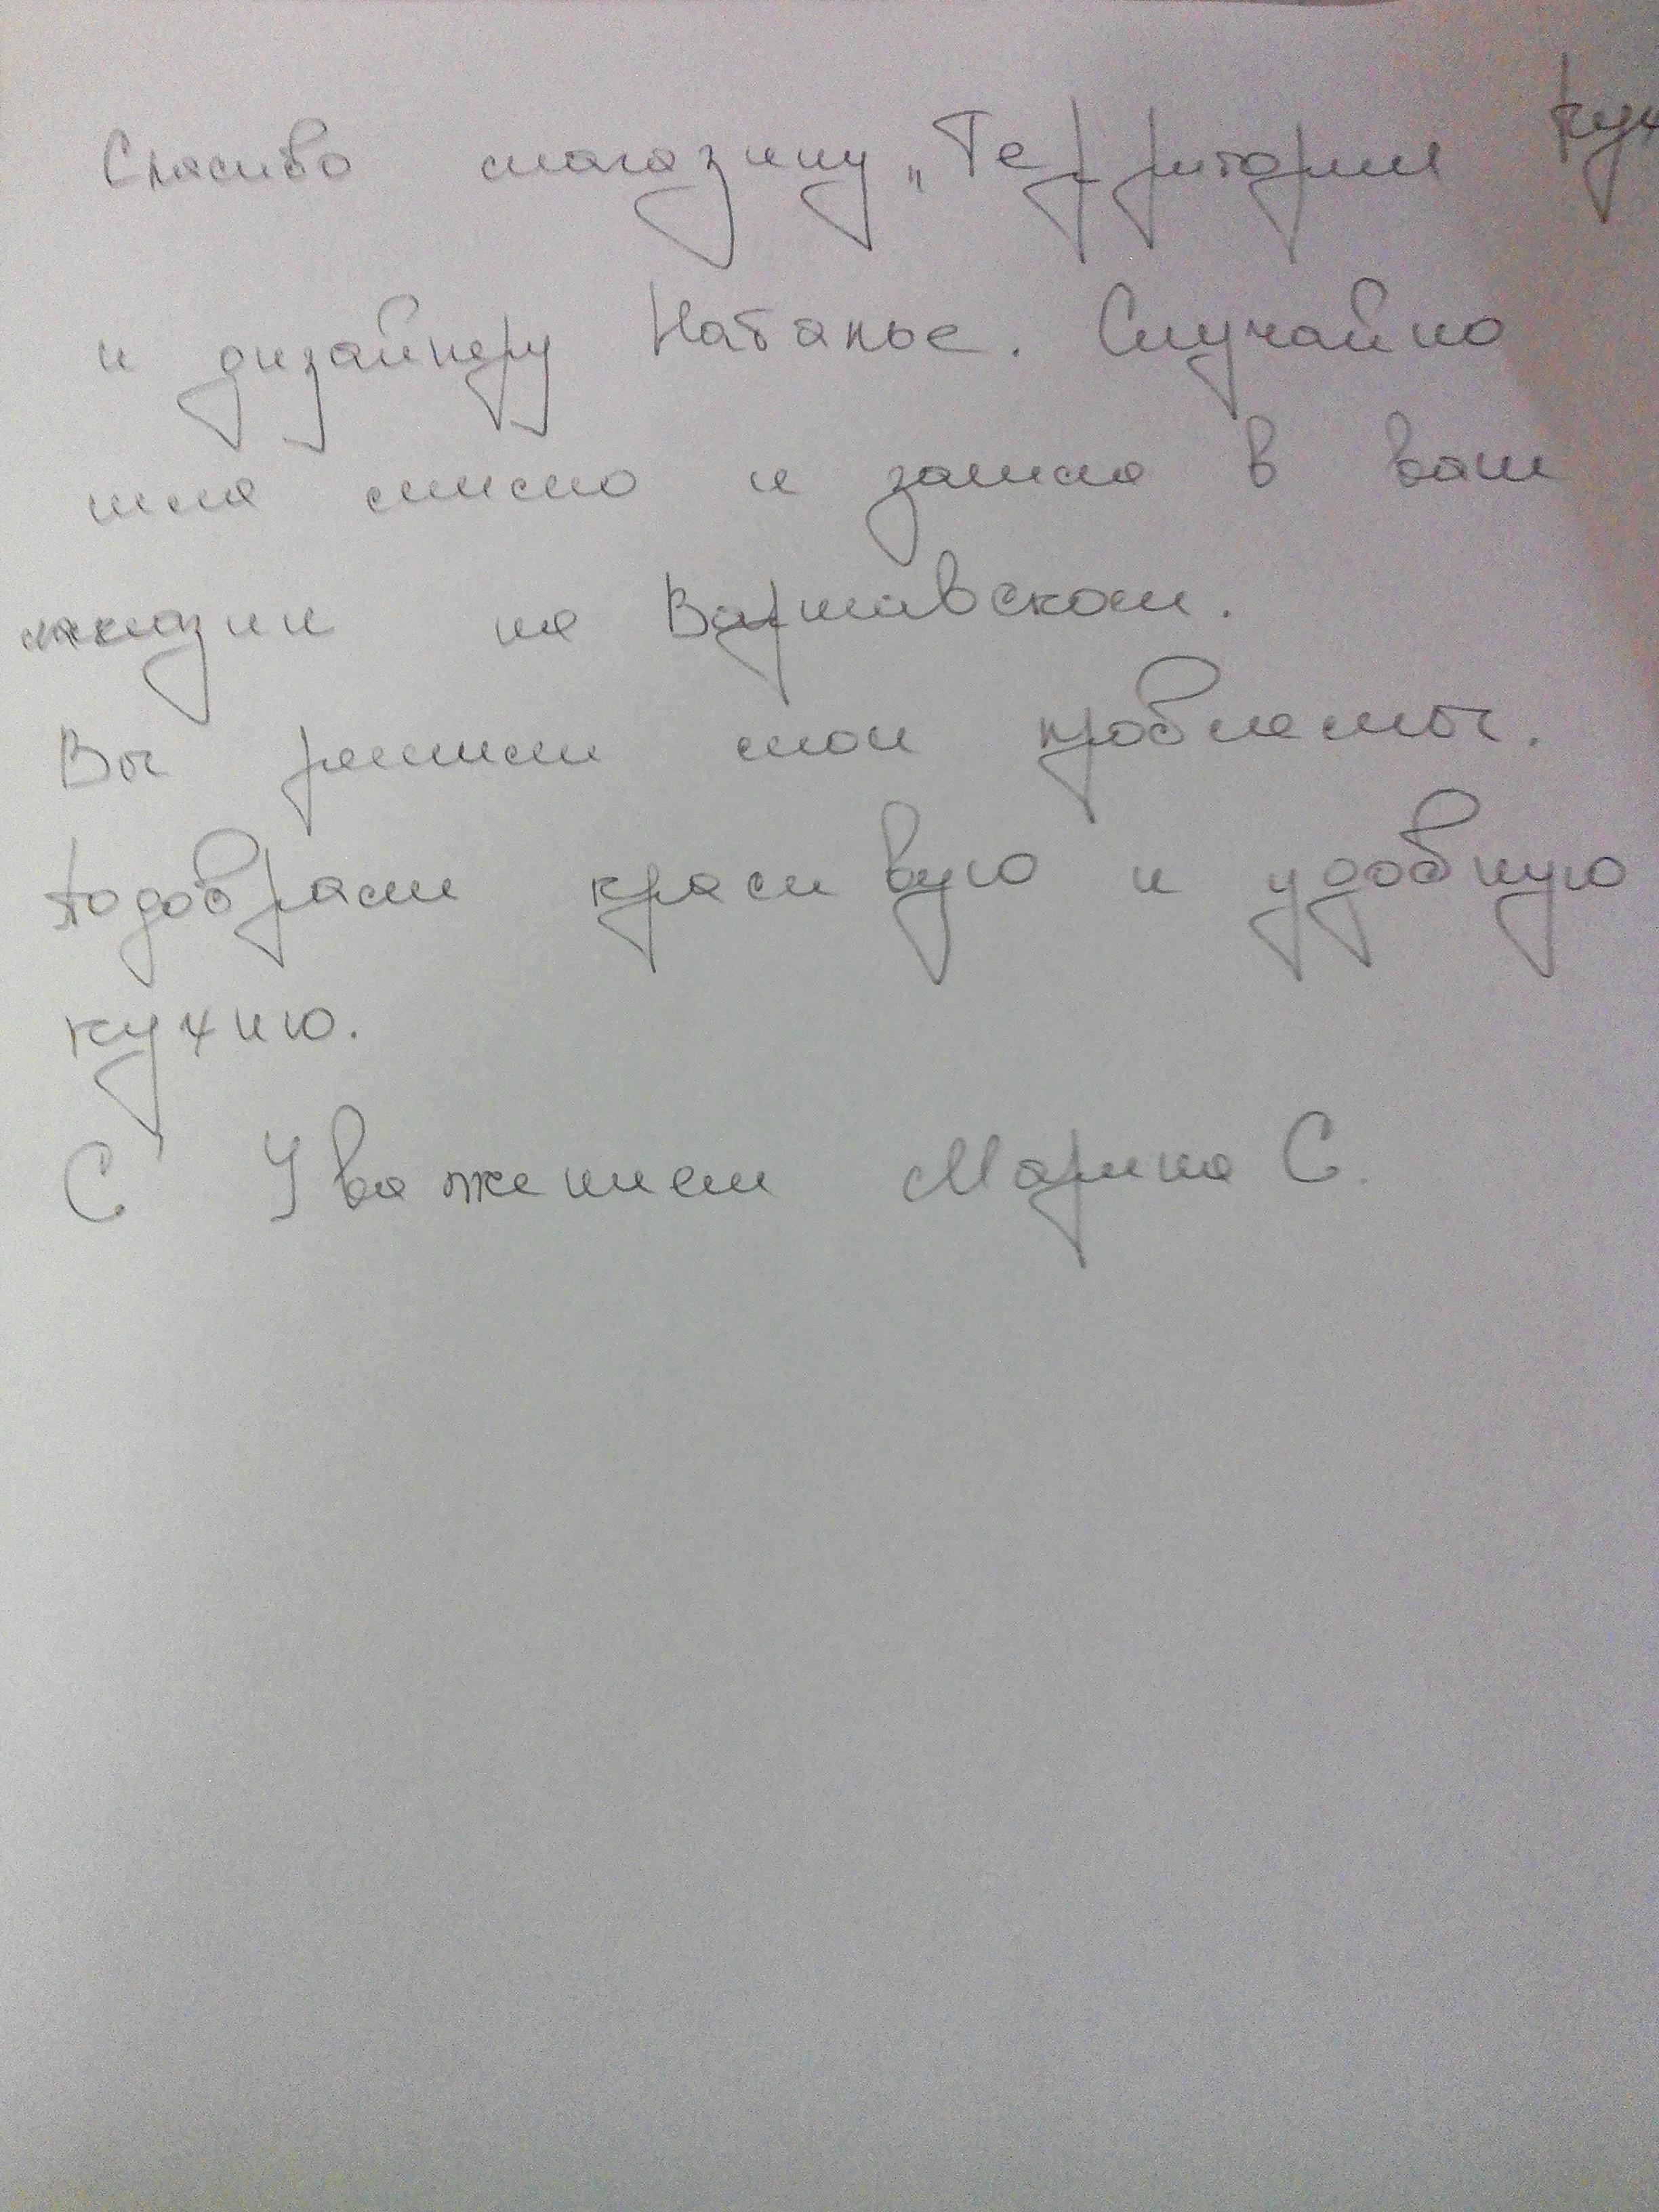 Спасибо магазину „Территория кух
и дизайнеру Наталье. Случайно
шла мимо и зашла в ваш
магазин на Варшавском.
Вы решили мои проблемы.
Подобрали красивую и удобную
кухню.
С Уважением Марина С.